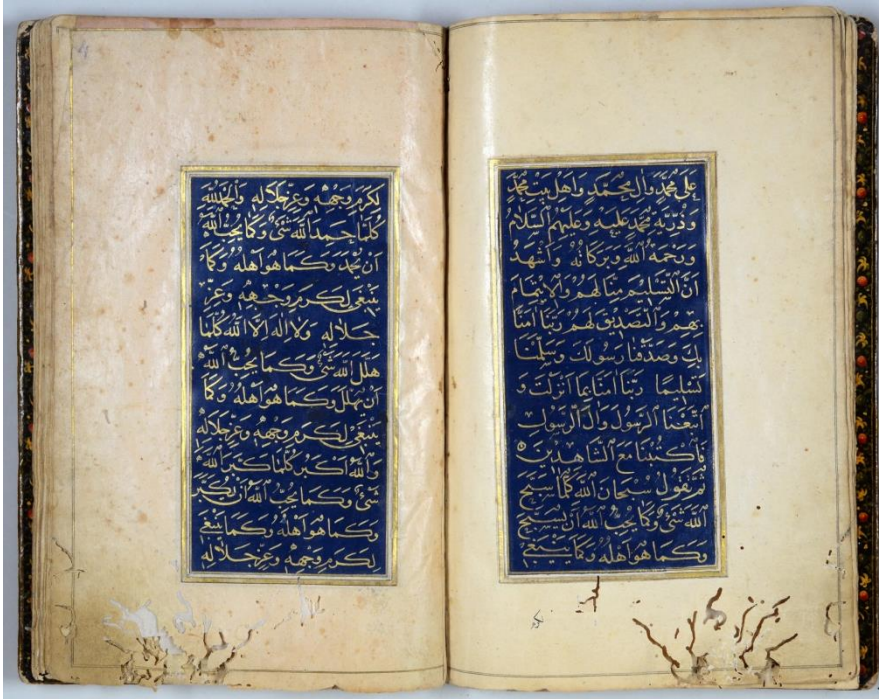 علی محمد وال محمد واهل بیت محمد
وذریة محمد علیه وعلیهم السلام
ورحمة الله وبرکاته واشهد
ان التسلیم منا لهم والایتمام
بهم والتصدیق لهم ربنا امنا
بک وصدقنا رسولک وسلمنا
تسلیما ربنا امنا بما انزلت و
اتبعنا الرسول وال الرسول
فاکتبنا مع الشاهدین
ثم تقول سبحان الله کلما سبح
الله شئ وکما یحب الله ان یسبح
وکما هو اهله وکما ینبغی
لکرم وجهه وعز جلاله والحمد لله
کلما حمد الله شئ وکما یحب الله
ان یحمد وکما هو اهله وکما
ینبغی لکرم وجهه وعز
جلاله ولا اله الا الله کلما
هلل الله شئ وکما یحب الله
ان یهلل وکما هو اهله وکما
ینبغی لکرم وجهه وعز جلاله
والله اکبر کلما کبر الله
شئ وکما یحب الله ان یکبر
وکما هو اهله وکما ینبغی
لکرم وجهه وعز جلاله